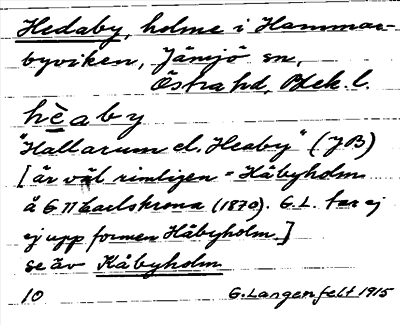 Hedaby, holme i Hammar-
byviken, Jämjö sn,
Östra hd, Blek. l.
hèaby
"Hallarum el. Heaby" (JB)
[är väl rimligen = Håbyholm
å G. 11 Carlskrona (1870). G. L. tar ej
ej upp formen Håbyholm.]
se äv Kåbyholm
10 G. Langenfelt 1915